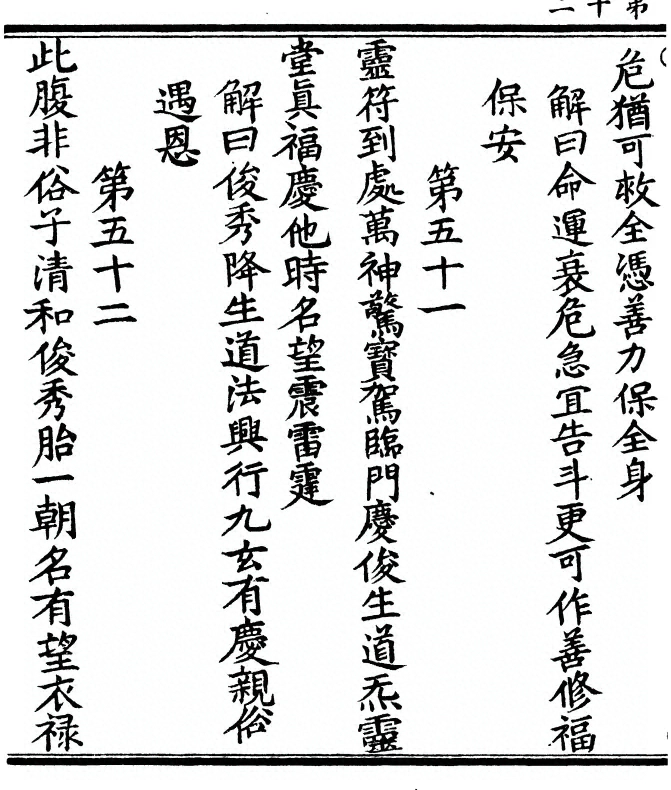 第十二
危猶可救全憑善力保全身
解曰命運衰危急宜告斗更可作善修福
保安
第五十一
靈符到處萬神驚寶駕臨門慶俊生道炁靈
堂眞福慶他時名望震雷霆
解曰俊秀降生道法興行九玄有慶親俗
遇恩
第五十二
此腹非俗子清和俊秀胎一朝名有望衣禄